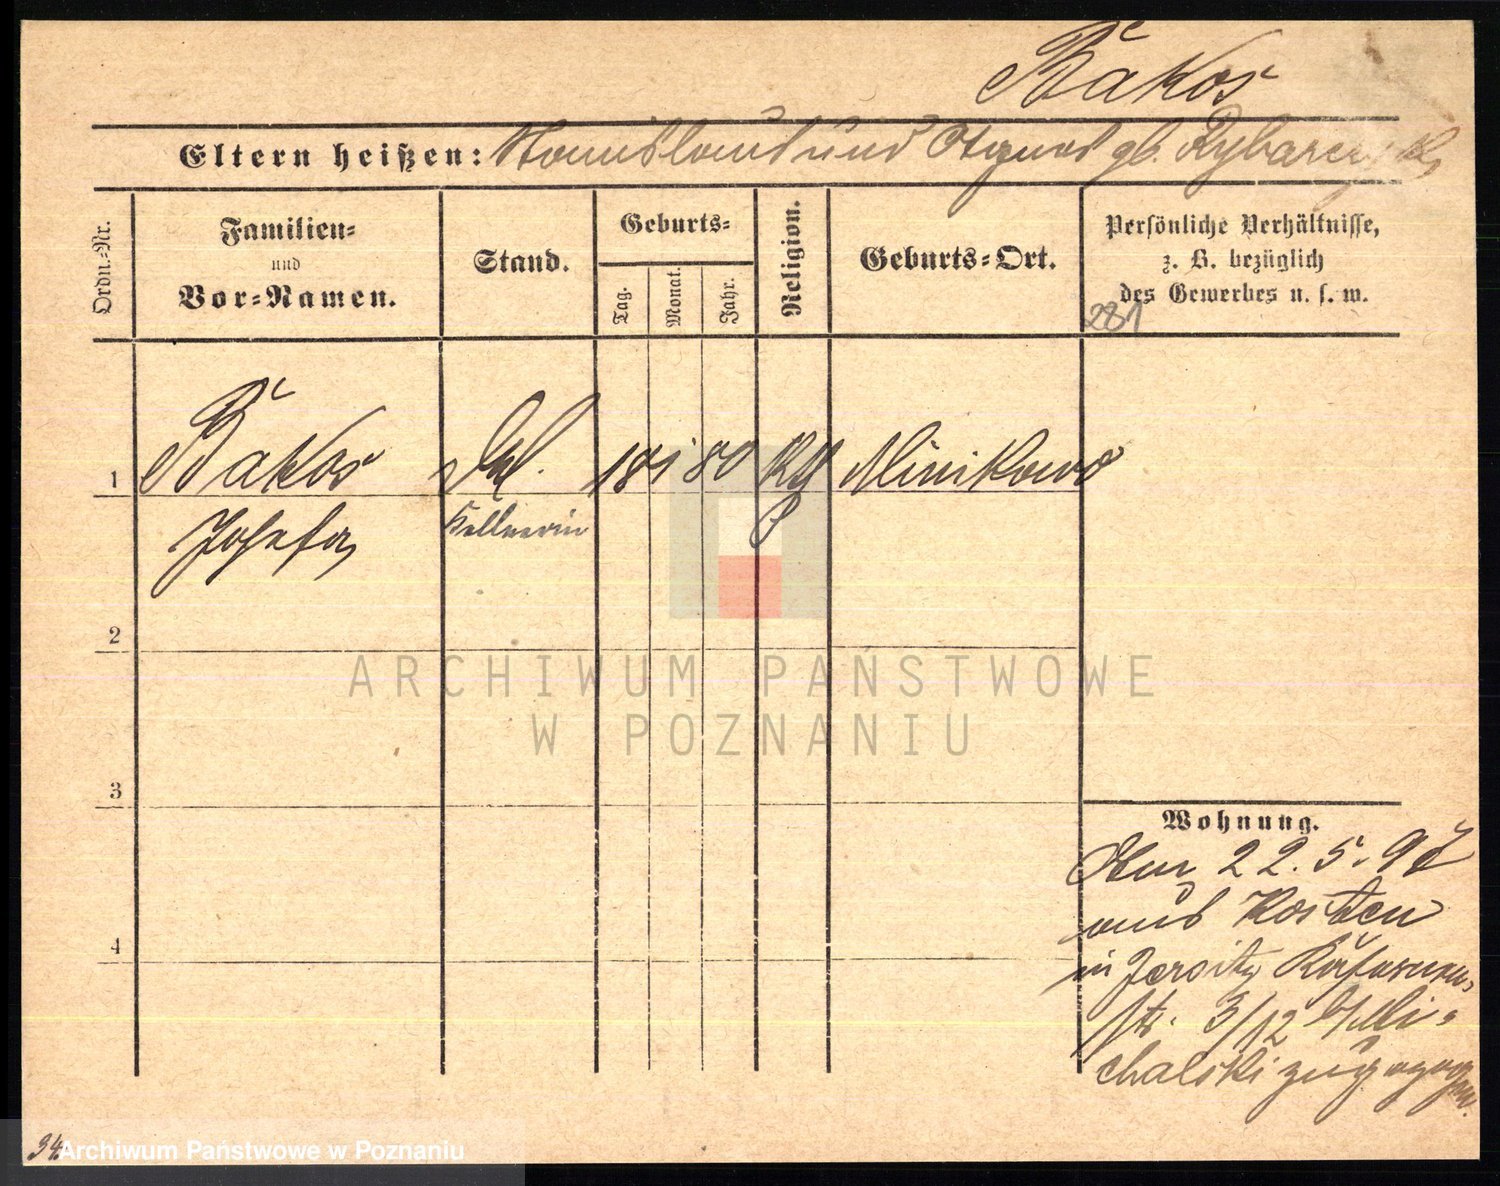 Bąkos
Eltern heißen: Stanislaus und Agnes gb. Rybarczyk
Ordn.-Nr.
Familien-
und
Vor-Namen.
Stand.
Geburts-
Tag.
Monat.
Jahr.
Religion.
Geburts-Ort.
Persönliche Verhältnisse,
z. B. bezüglich
des Gewerbes u. s. w.
281
1
Bąkos
Josefa
Kellnerin
18 1 80
Kth
Minikowo
2
3
4
Wohnung.
Am 22. 5. 97
aus Kosten
in Jersitz
str. 3/12 b/Mi-
chalski zugezogen.
34.
ARCHIWUM PAŃSTWOWE
W POZNANIU
Archiwum Państwowe w Poznaniu